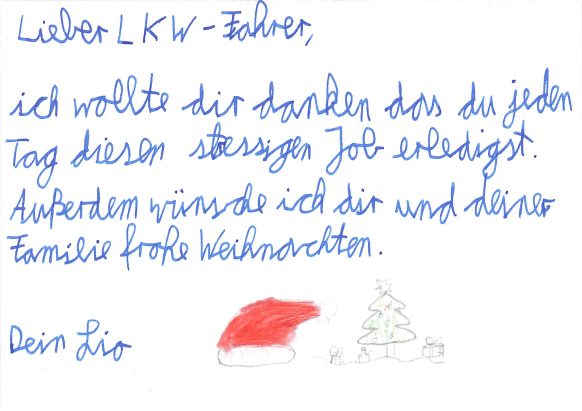 Lieber LKW-Fahrer,
ich wollte dir danken das du jeden
Tag diesen stressigen Job erledigst.
Außerdem wünsche ich dir und deiner
Familie frohe Weihnachten.
Dein Lio